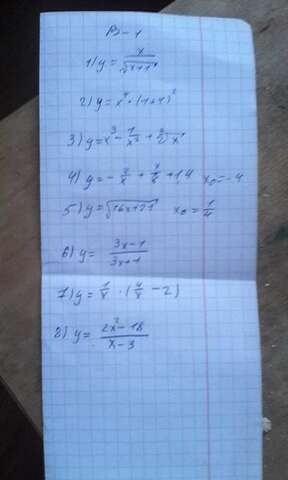 В-1
1) y = x / √(x+1)
2) y = x⁴ · (x+1)²
3) y = x³ - 1/x³ +
4) y = - 2/x + x/8 + 14 x₀ = -4
5) y = √(16x+21) x₀ = 1/4
6) y = (3x-1) / (3x+1)
7) y = 1/x · (4/x - 2)
8) y = (2x²-18) / (x-3)